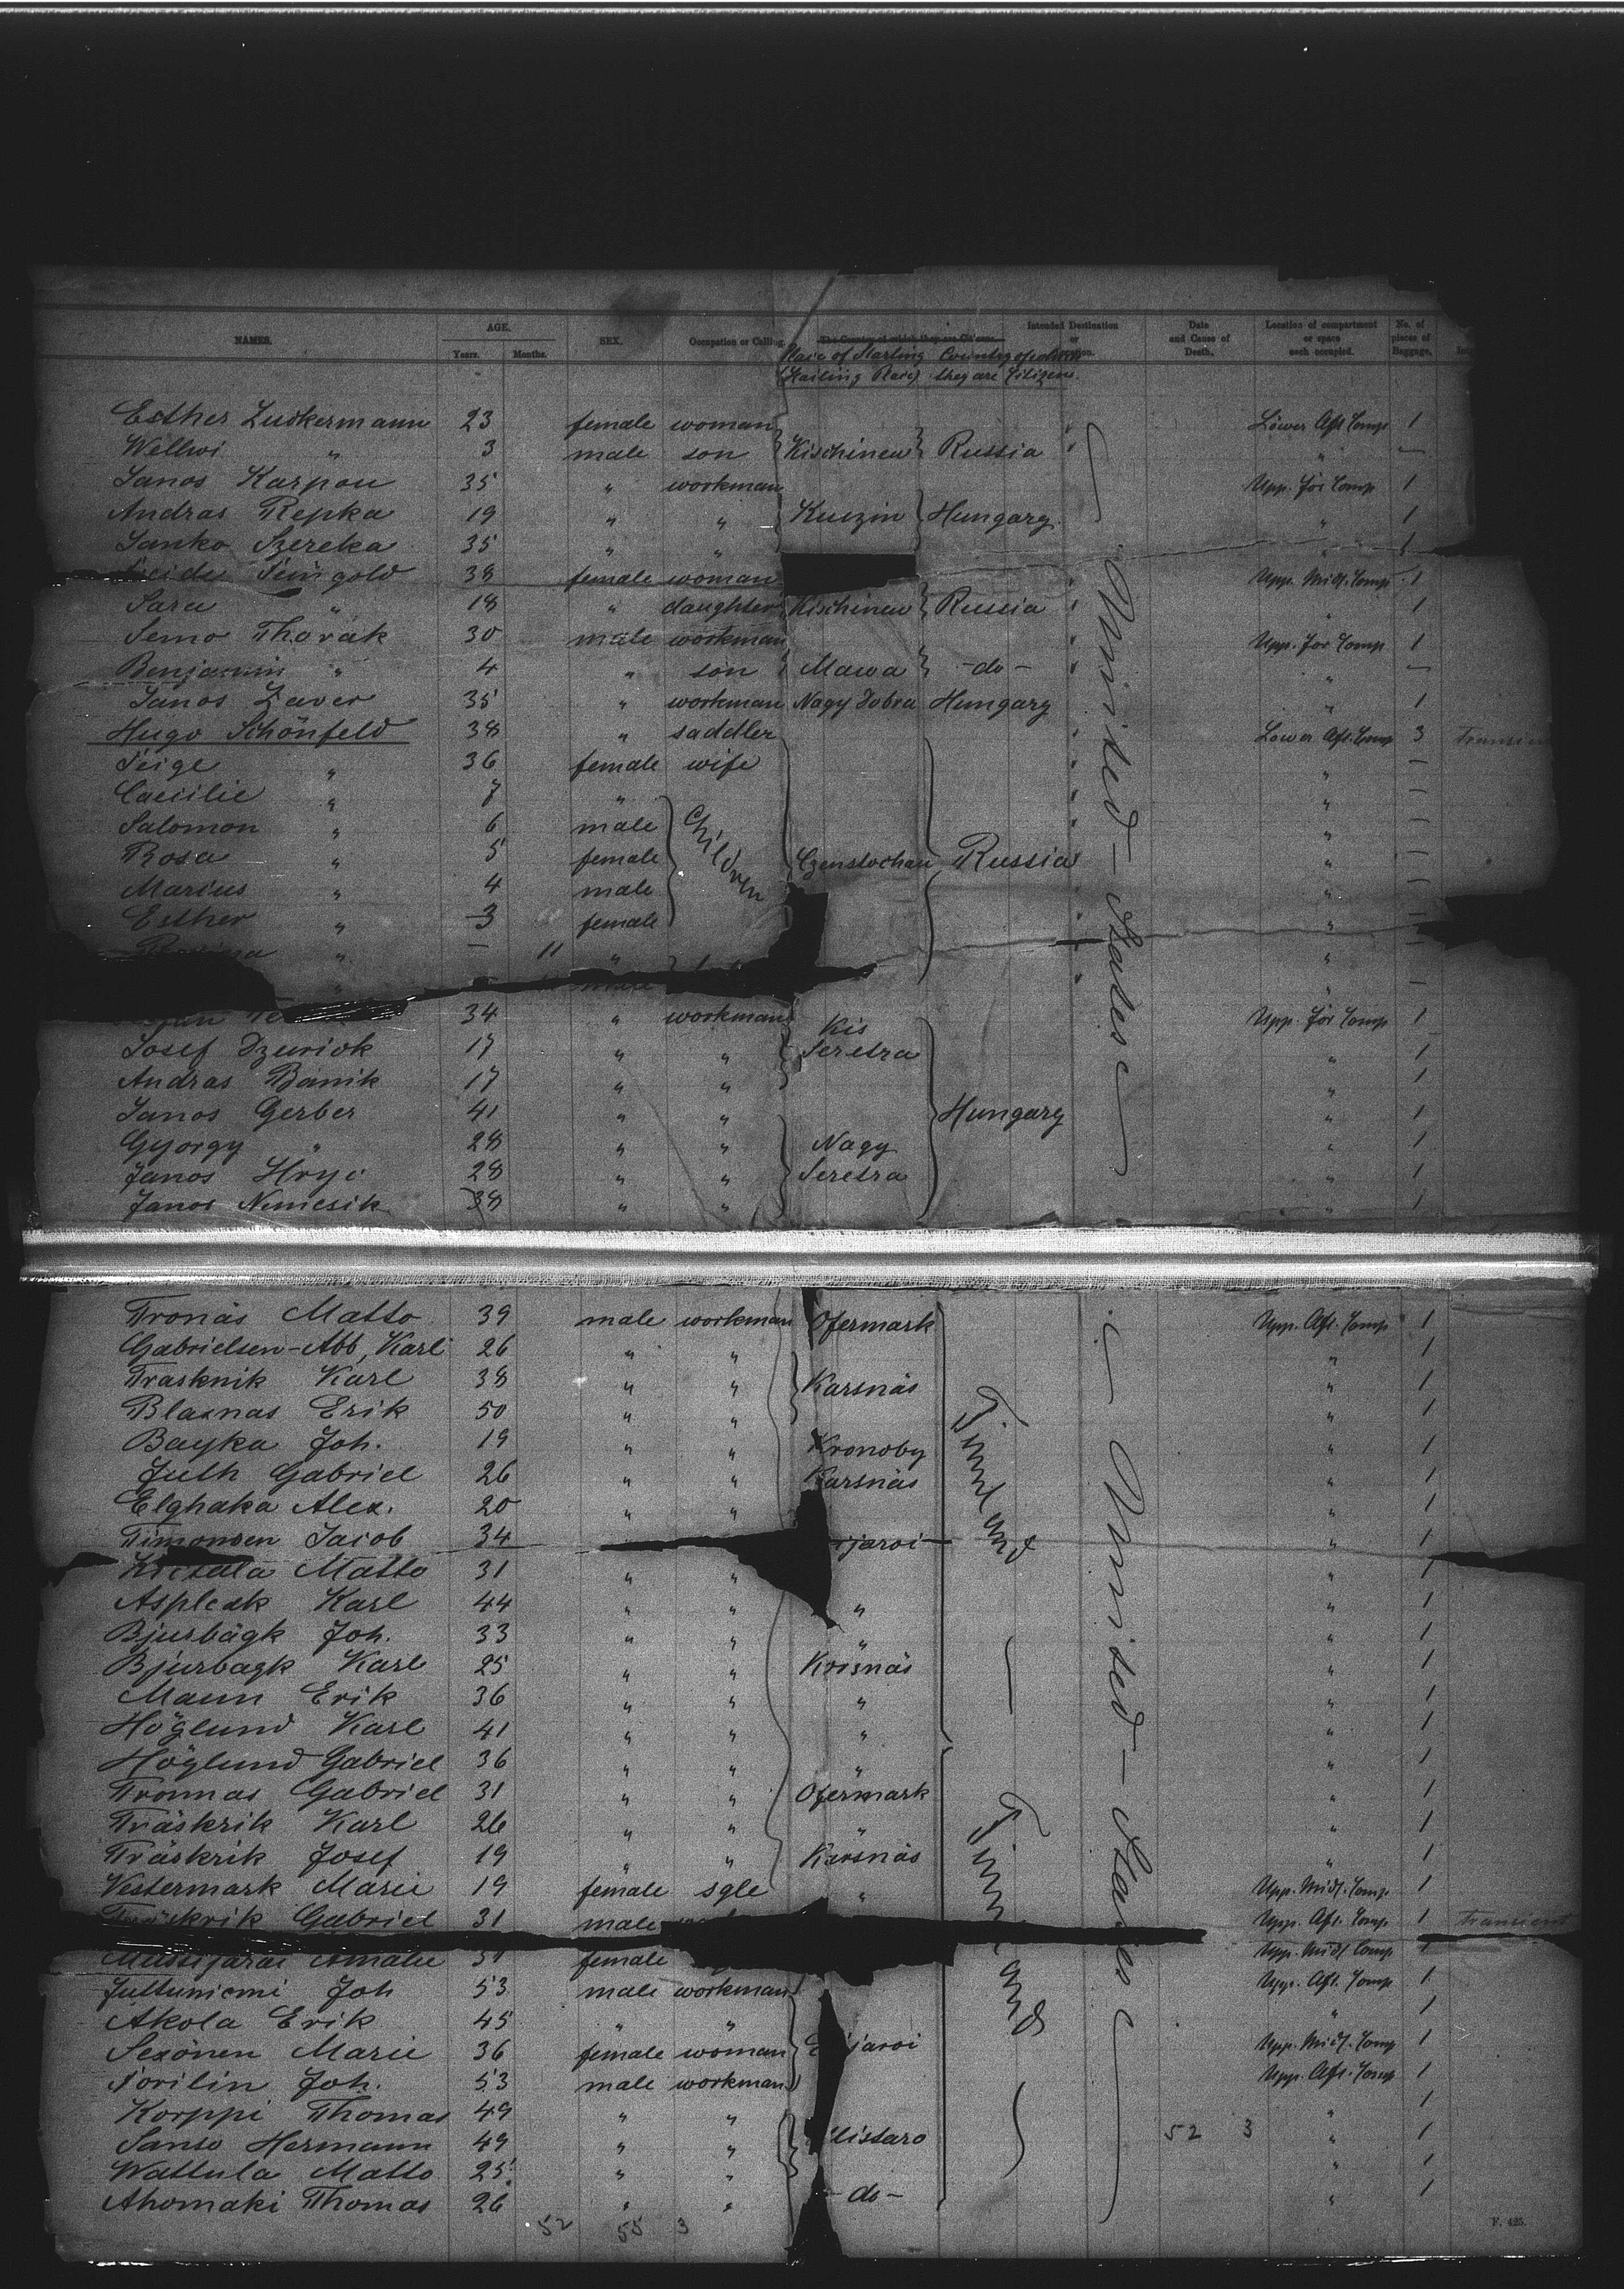 NAMES. AGE. SEX. Occupation or Calling. The Country of which they are Citizens. Intended Destination or Location. Date and Cause of Death. Location of compartment or space each occupied. No. of pieces of Baggage.
Years. Months. Place of Starting Country of which
(Hailing Place) they are Citizens.
Esther Zuckermann 23 female woman Lower Aft Comp 1
Wellwi " 3 male son Kischinew Russia " —
Janos Karpou 35 " workman Upp. for Comp 1
Andras Repka 19 " " Kuszin Hungary " 1
Janko Szereka 35 " " " 1
Feingold 38 female woman Upp. Mid. Comp 1
Sara " 18 " daughter Kischinew Russia " 1
Semo Thorak 30 male workman Upp. for Comp 1
Benjamin " 4 " son Mawa -do- " —
Janos Zaver 35 " workman Nagy Dobra Hungary " 1
Hugo Schönfeld 38 " saddler Lower Aft. Comp 3
Feige " 36 female wife " —
Caecilie " 7 " " —
Salomon " 6 male Children " —
Rosa " 5 female Czenstochau Russia " —
Marius " 4 male " —
Esther " 3 female " —
" — 11 " " —
United States
34 " workman Upp. for Comp 1
Josef Dzurick 17 " " Kis Seretra " 1
Andras Banik 17 " " " 1
Janos Gerber 41 " " Hungary " 1
György " 28 " " Nagy " 1
Janos Hryc 28 " " Seretra " 1
Janos Nemcsik 38 " " " 1
Tronäs Matto 39 male workman Ofermark Upp. Aft. Comp 1
Gabrielsen-Abb, Karl 26 " " " 1
Trasknik Karl 38 " " Karsnäs " 1
Blaxnas Erik 50 " " " 1
Bayka Joh. 19 " " Kronoby " 1
Juth Gabriel 26 " " Karsnäs " 1
Elghaka Alex. 20 " " " 1
Timonsen Jacob 34 jaroi " 1
Matto 31 " " " 1
Aspleak Karl 44 " " " " 1
Bjurbägk Joh. 33 " " " " 1
Bjurbagk Karl 25 " " Korsnäs " 1
Mann Erik 36 " " " " 1
Höglund Karl 41 " " " " 1
Höglund Gabriel 36 " " " " 1
Tronnas Gabriel 31 " " Ofermark " 1
Träskrik Karl 26 " " " " 1
Träskrik Josef 19 " " Karsnäs " 1
Vestermark Marie 19 female sgle " Upp. Mid. Comp. 1
Träskrik Gabriel 31 male Upp. Aft. Comp 1 Transient
Amalie female Upp. Mid. Comp 1
Juttuniemi Joh 53 male workman Upp. Aft. Comp 1
Akola Erik 45 " " " 1
Sexönen Marie 36 female woman jaroi Upp. Mid. Comp 1
Torilin Joh. 53 male workman Upp. Aft. Comp 1
Korppi Thomas 49 " " " 1
Sanso Hermann 49 " " listaro 52 3 " 1
Wattula Matto 25 " " " 1
Ahomaki Thomas 26 " " -do- " 1
Finnland
Finnland
United States
52 55 3
F. 425.